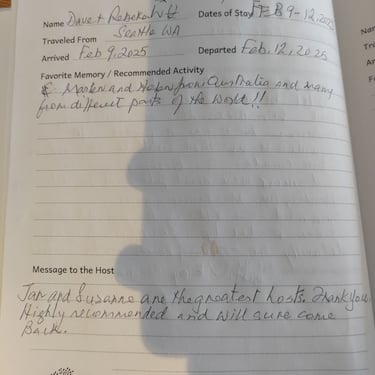 Name Dave + Rebekah Dates of Stay FEB 9-12, 2025
Traveled From Seattle WA
Arrived Feb 9, 2025 Departed Feb, 12, 2025
Favorite Memory / Recommended Activity
and from Australia and many
from different parts of the World!!
Message to the Host
Jan and Suzanne are the greatest hosts. Thank you
Highly recommended and will sure come
Back.
Na
Tra
Ar
F